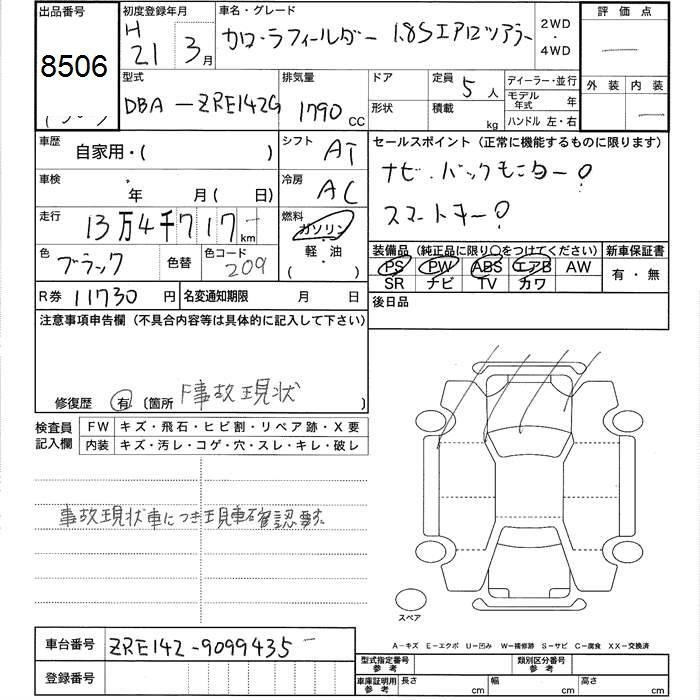 出品番号
8506
初度登録年月
H
21 3月
車名・グレード
カローラフィールダー 1.8Sエアロツアラー
2WD
・
4WD
評価点
—
外装 内装
—
型式
DBA-ZRE142G
排気量
1790 CC
ドア
形状
定員 5人
積載 kg
ディーラー・並行
モデル年式 年
ハンドル 左・右
車歴
自家用・( )
シフト AT
セールスポイント（正常に機能するものに限ります）
ナビ・バックモニター
スマートキー
車検
年 月( 日)
冷房 AC
走行
13万4千717km
燃料
ガソリン
・
軽・油
( ・ )
色 ブラック
色替
色コード 209
装備品（純正品に限り○をつけてください）
新車保証書
PS PW ABS エアB AW
SR ナビ TV カワ
有・無
R券 11730円
名変通知期限 月 日
後日品
注意事項申告欄（不具合内容等は具体的に記入して下さい）
修復歴 有 〔箇所 F事故現状 〕
検査員
記入欄
FW キズ・飛石・ヒビ割・リペア跡・X要
内装 キズ・汚レ・コゲ・穴・スレ・キレ・破レ
事故現状車につき現車確認要す
スペア
車台番号 ZRE142-9099435
登録番号
A-キズ E-エクボ U-凹み W-補修跡 S-サビ C-腐食 XX-交換済
型式指定番号
参考
類別区分番号
参考
車庫証明用
参考
長さ cm 幅 cm 高さ cm